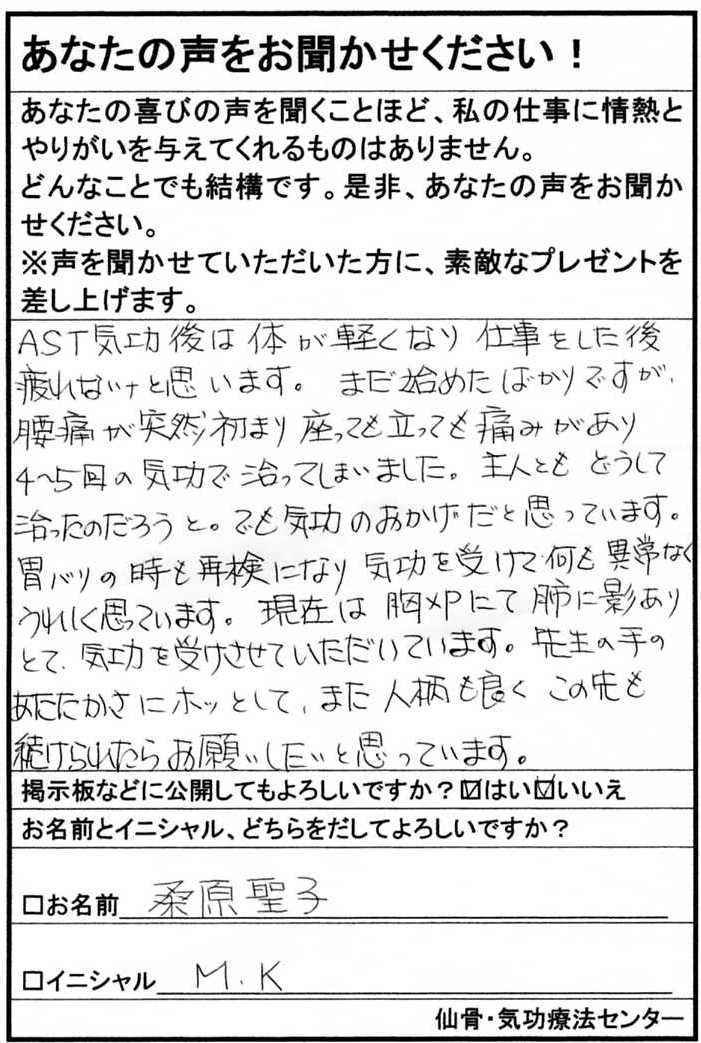 あなたの声をお聞かせください！
あなたの喜びの声を聞くことほど、私の仕事に情熱と
やりがいを与えてくれるものはありません。
どんなことでも結構です。是非、あなたの声をお聞か
せください。
※声を聞かせていただいた方に、素敵なプレゼントを
差し上げます。
AST気功後は体が軽くなり仕事をした後
疲れないナと思います。まだ始めたばかりですが、
腰痛が突然初まり座っても立っても痛みがあり
4〜5回の気功で治ってしまいました。主人とも どうして
治ったのだろうと。でも気功のおかげだと思っています。
胃バリの時も再検になり気功を受けて何も異常なく
うれしく思っています。現在は胸XPにて肺に影あり
とて、気功を受けさせていただいています。先生の手の
あたたかさにホッとして、また人柄も良くこの先も
続けられたらお願いしたいと思っています。
掲示板などに公開してもよろしいですか？☑はい☑いいえ
お名前とイニシャル、どちらをだしてよろしいですか？
□お名前 桑原聖子
□イニシャル M.K
仙骨・気功療法センター